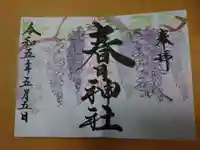 奉拝
春日神社
令和五年五月五日